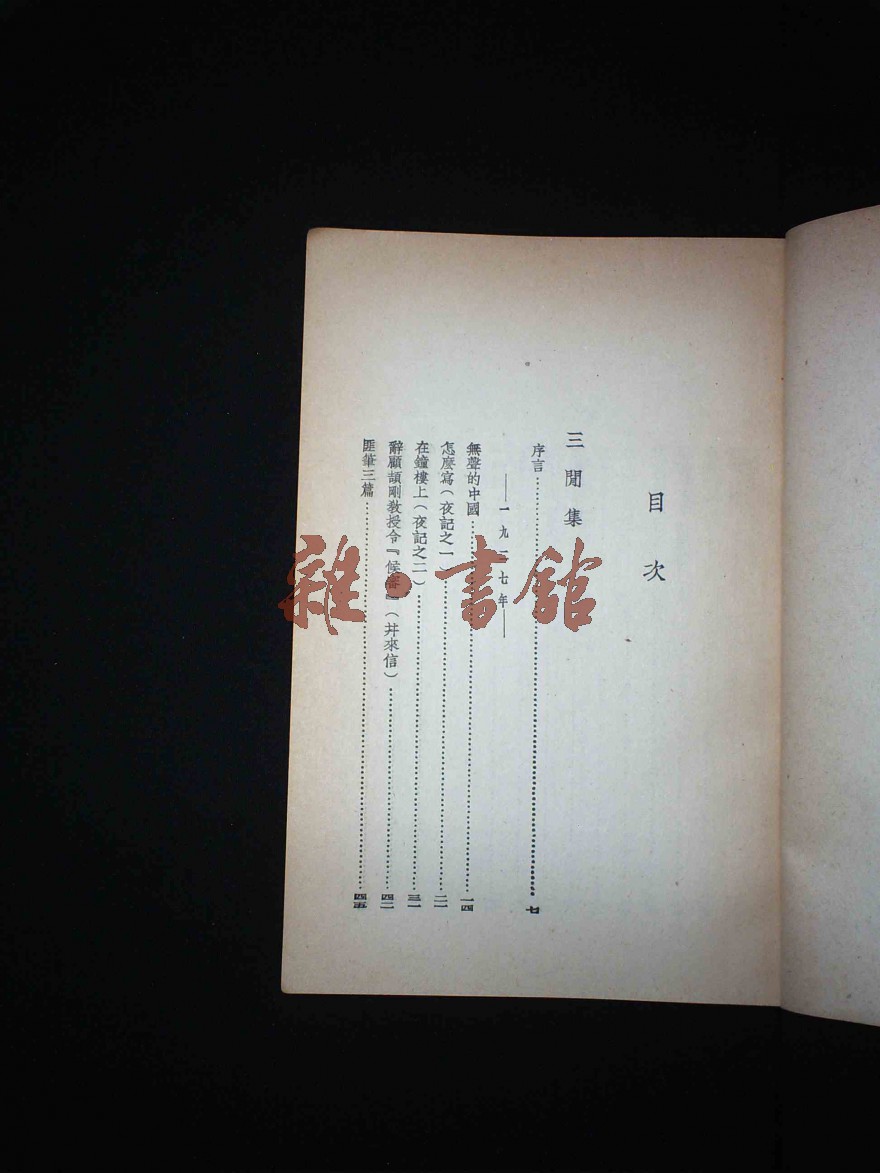 目次
三閒集
序言………………七
——一九二七年——
無聲的中國………………一四
怎麼寫（夜記之一）………………二一
在鐘樓上（夜記之二）………………三一
辭顧頡剛教授令『候審』（幷來信）………………四二
匪筆三篇………………四五
雜·書館